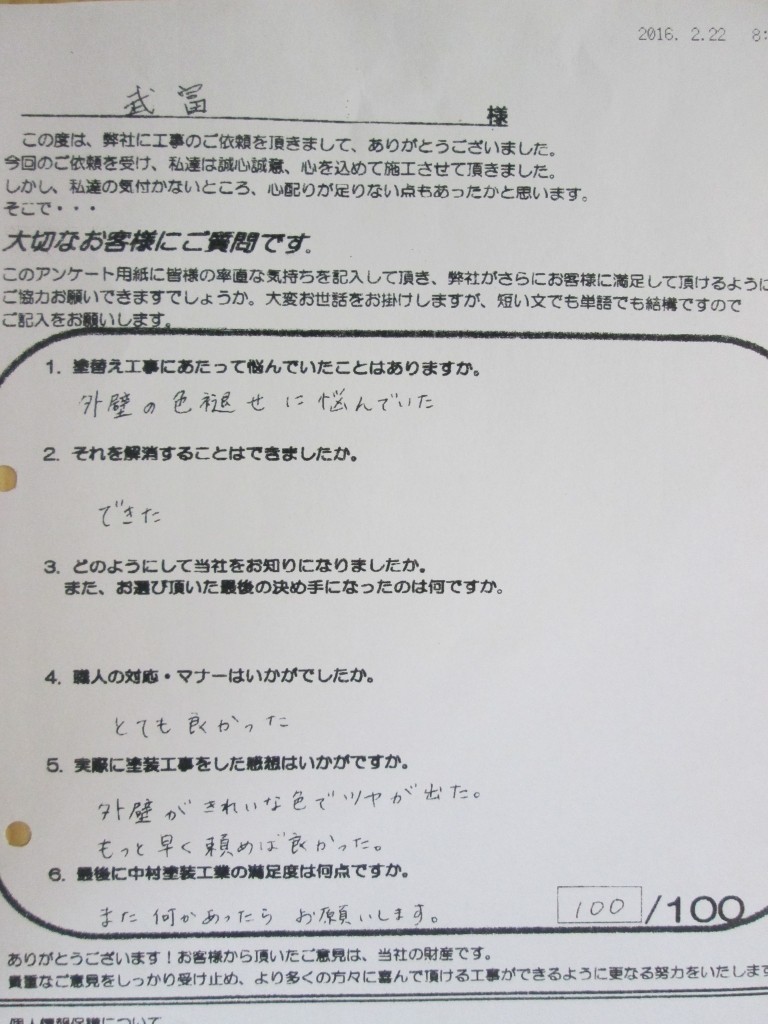 2016. 2.22 8:
武冨 様
この度は、弊社に工事のご依頼を頂きまして、ありがとうございました。
今回のご依頼を受け、私達は誠心誠意、心を込めて施工させて頂きました。
しかし、私達の気付かないところ、心配りが足りない点もあったかと思います。
そこで・・・
大切なお客様にご質問です。
このアンケート用紙に皆様の率直な気持ちを記入して頂き、弊社がさらにお客様に満足して頂けるように
ご協力お願いできますでしょうか。大変お世話をお掛けしますが、短い文でも単語でも結構ですので
ご記入をお願いします。
1. 塗替え工事にあたって悩んでいたことはありますか。
外壁の色褪せに悩んでいた
2. それを解消することはできましたか。
できた
3. どのようにして当社をお知りになりましたか。
また、お選び頂いた最後の決め手になったのは何ですか。
4. 職人の対応・マナーはいかがでしたか。
とても良かった
5. 実際に塗装工事をした感想はいかがですか。
外壁がきれいな色でツヤが出た。
もっと早く頼めば良かった。
6. 最後に中村塗装工業の満足度は何点ですか。
また何かあったらお願いします。 100 /100
ありがとうございます！お客様から頂いたご意見は、当社の財産です。
貴重なご意見をしっかり受け止め、より多くの方々に喜んで頂ける工事ができるように更なる努力をいたします
個人情報保護について